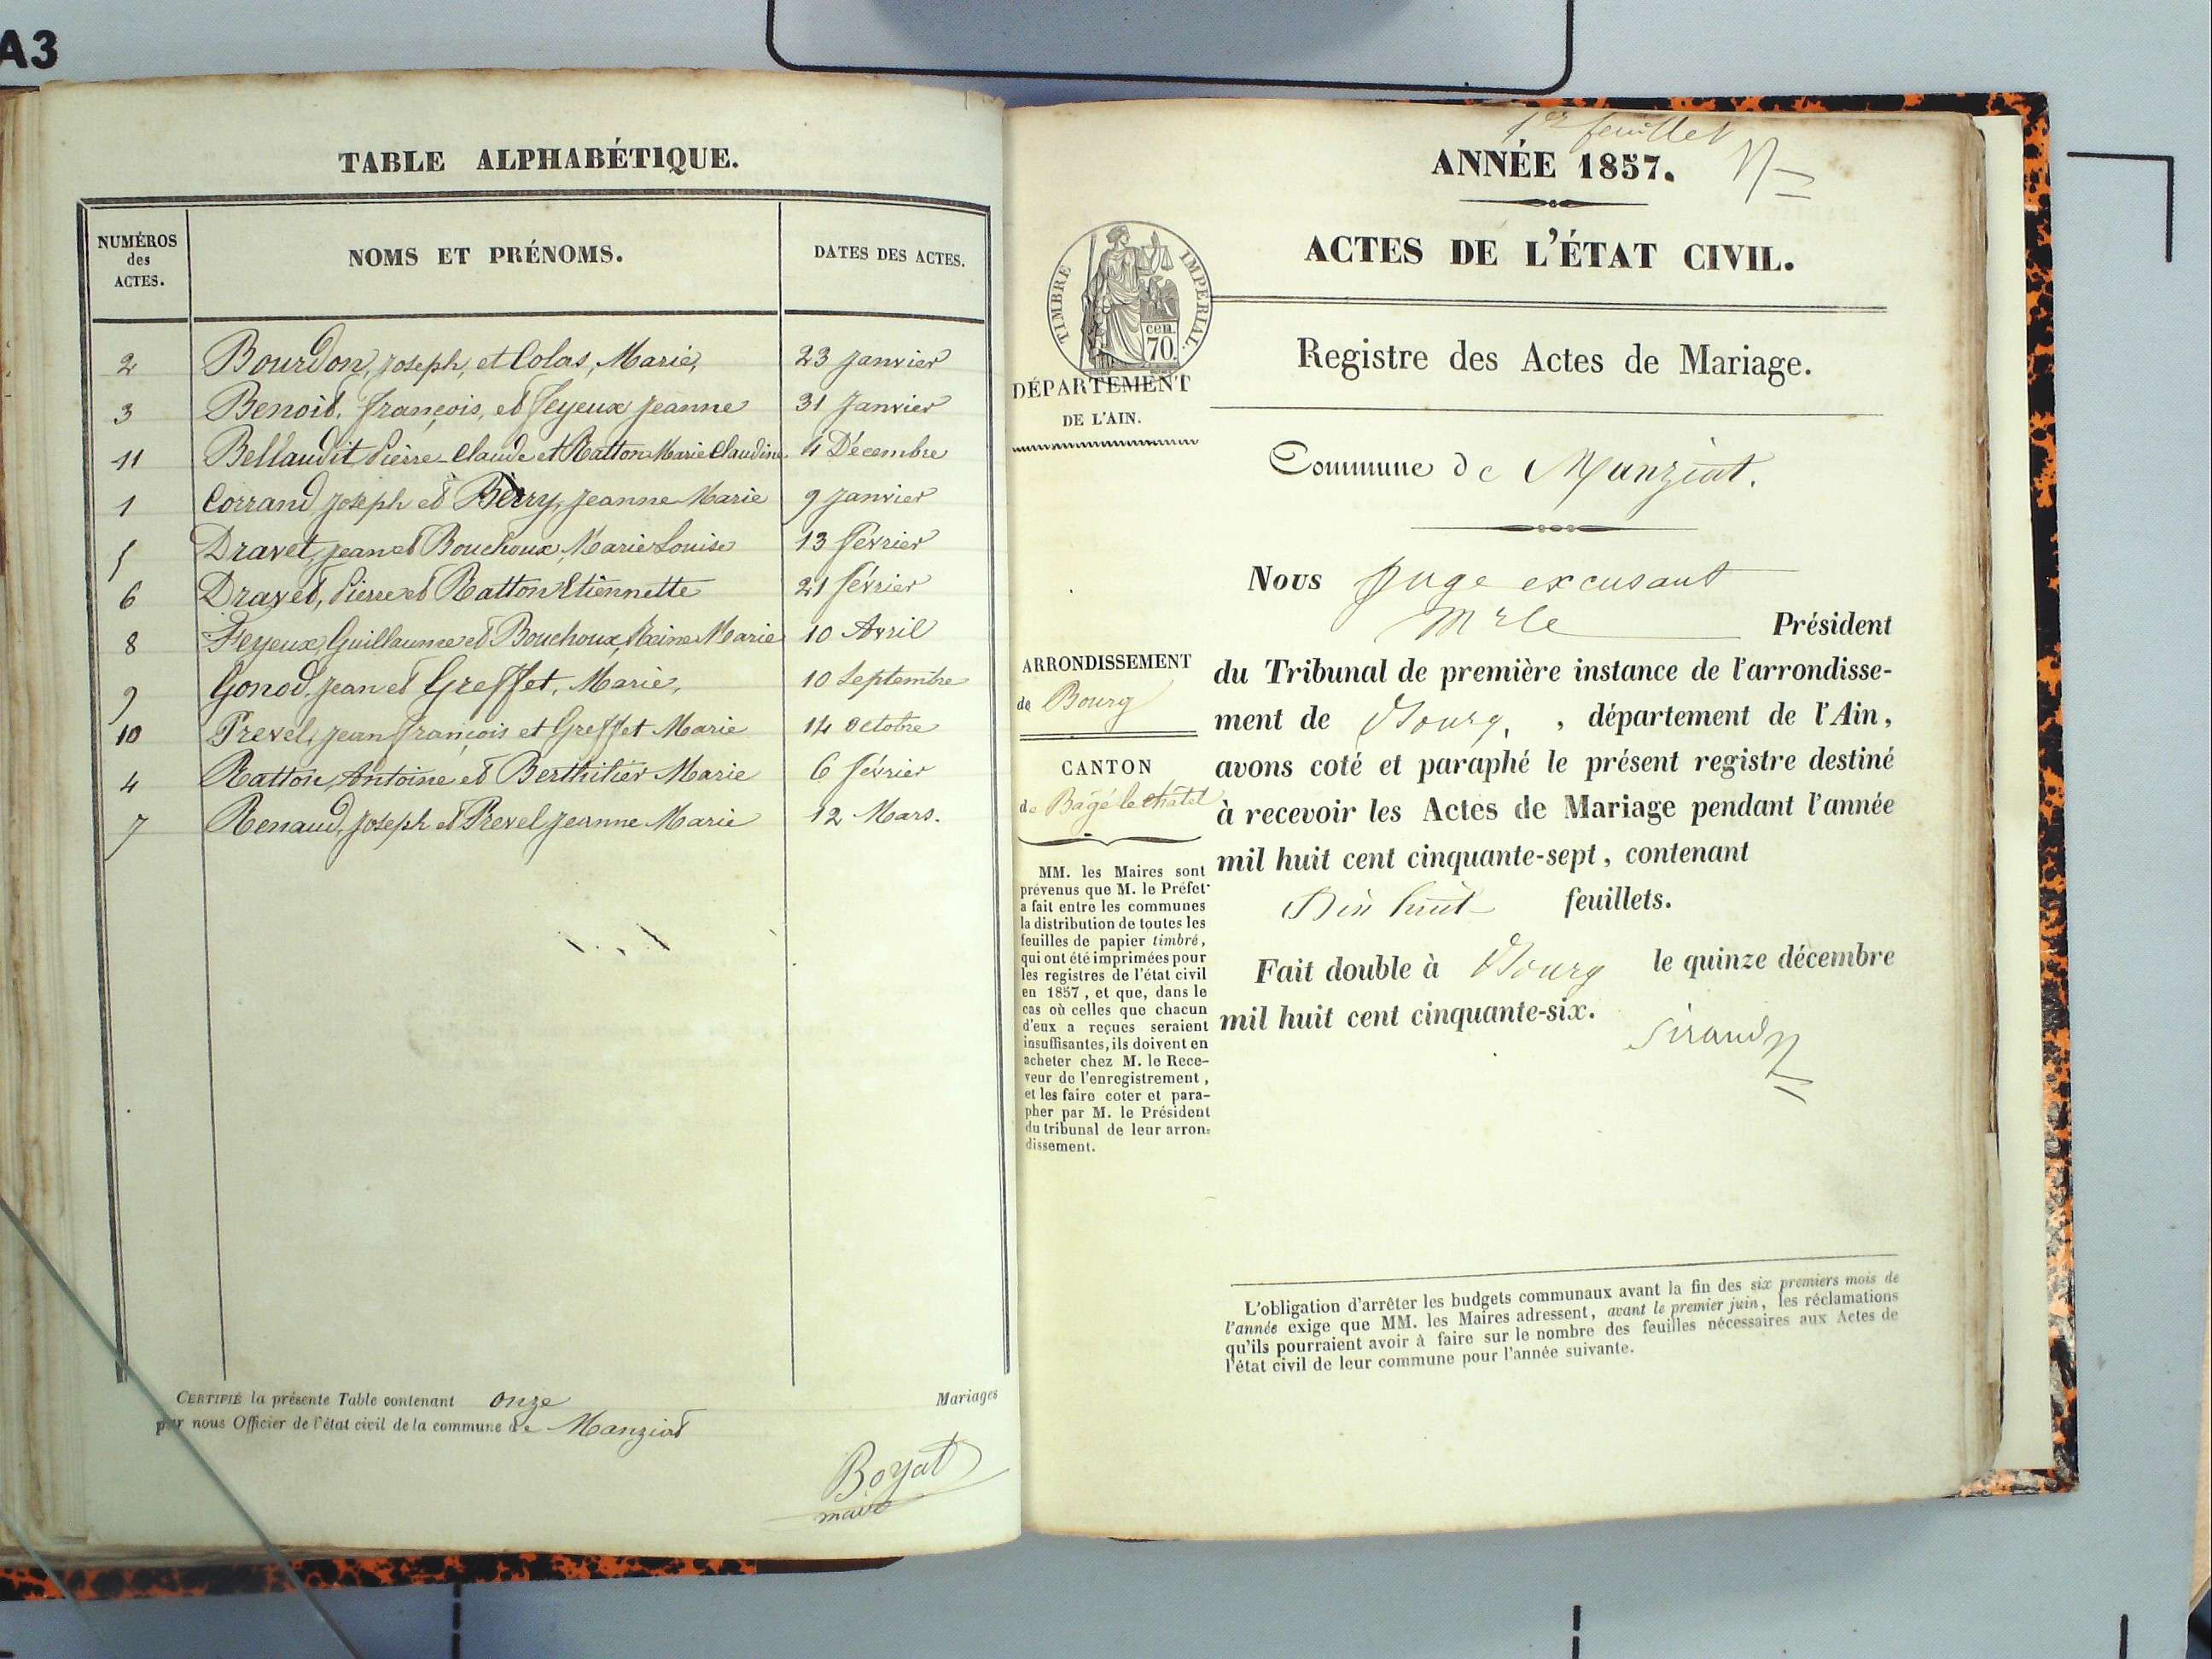 A3
TABLE ALPHABÉTIQUE.
NUMÉROS
des
ACTES.
NOMS ET PRÉNOMS.
DATES DES ACTES.
2 Bourdon, Joseph, et Colas, Marie, 23 Janvier
3 Benoit, François, et Feyeux Jeanne 31 Janvier
11 Bellaudit Pierre-Claude et Ratton Marie Claudine 4 Décembre
1 Corrand Joseph et Berry, Jeanne Marie 9 Janvier
5 Dravet, Jean et Bouchoux, Marie Louise 13 Février
6 Dravet, Pierre et Ratton Etiennette 21 Février
8 Feyeux, Guillaume et Bouchoux, Reine Marie 10 Avril
9 Gonod, Jean et Greffet, Marie, 10 Septembre
10 Prevel, Jean François et Greffet Marie 14 Octobre
4 Ratton, Antoine et Berthilier Marie 6 Février
7 Renaud, Joseph et Prevel Jeanne Marie 12 Mars.
CERTIFIÉ la présente Table contenant onze Mariages
par nous Officier de l'état civil de la commune de Manziat
Boyat
maire
1er feuillet
ANNÉE 1857.
ACTES DE L'ÉTAT CIVIL.
TIMBRE IMPERIAL.
cen.
70.
DÉPARTEMENT
DE L'AIN.
Registre des Actes de Mariage.
Commune de Manziat.
Nous Juge excusant
Mr le Président
du Tribunal de première instance de l'arrondisse-
ment de Bourg, , département de l'Ain,
avons coté et paraphé le présent registre destiné
à recevoir les Actes de Mariage pendant l'année
mil huit cent cinquante-sept, contenant
Dix huit feuillets.
Fait double à Bourg le quinze décembre
mil huit cent cinquante-six.
Sirand
ARRONDISSEMENT
de Bourg
CANTON
de Bagé le châtel
MM. les Maires sont
prévenus que M. le Préfet
a fait entre les communes
la distribution de toutes les
feuilles de papier timbré,
qui ont été imprimées pour
les registres de l'état civil
en 1857, et que, dans le
cas où celles que chacun
d'eux a reçues seraient
insuffisantes, ils doivent en
acheter chez M. le Rece-
veur de l'enregistrement,
et les faire coter et para-
pher par M. le Président
du tribunal de leur arron-
dissement.
L'obligation d'arrêter les budgets communaux avant la fin des six premiers mois de
l'année exige que MM. les Maires adressent, avant le premier juin, les réclamations
qu'ils pourraient avoir à faire sur le nombre des feuilles nécessaires aux Actes de
l'état civil de leur commune pour l'année suivante.